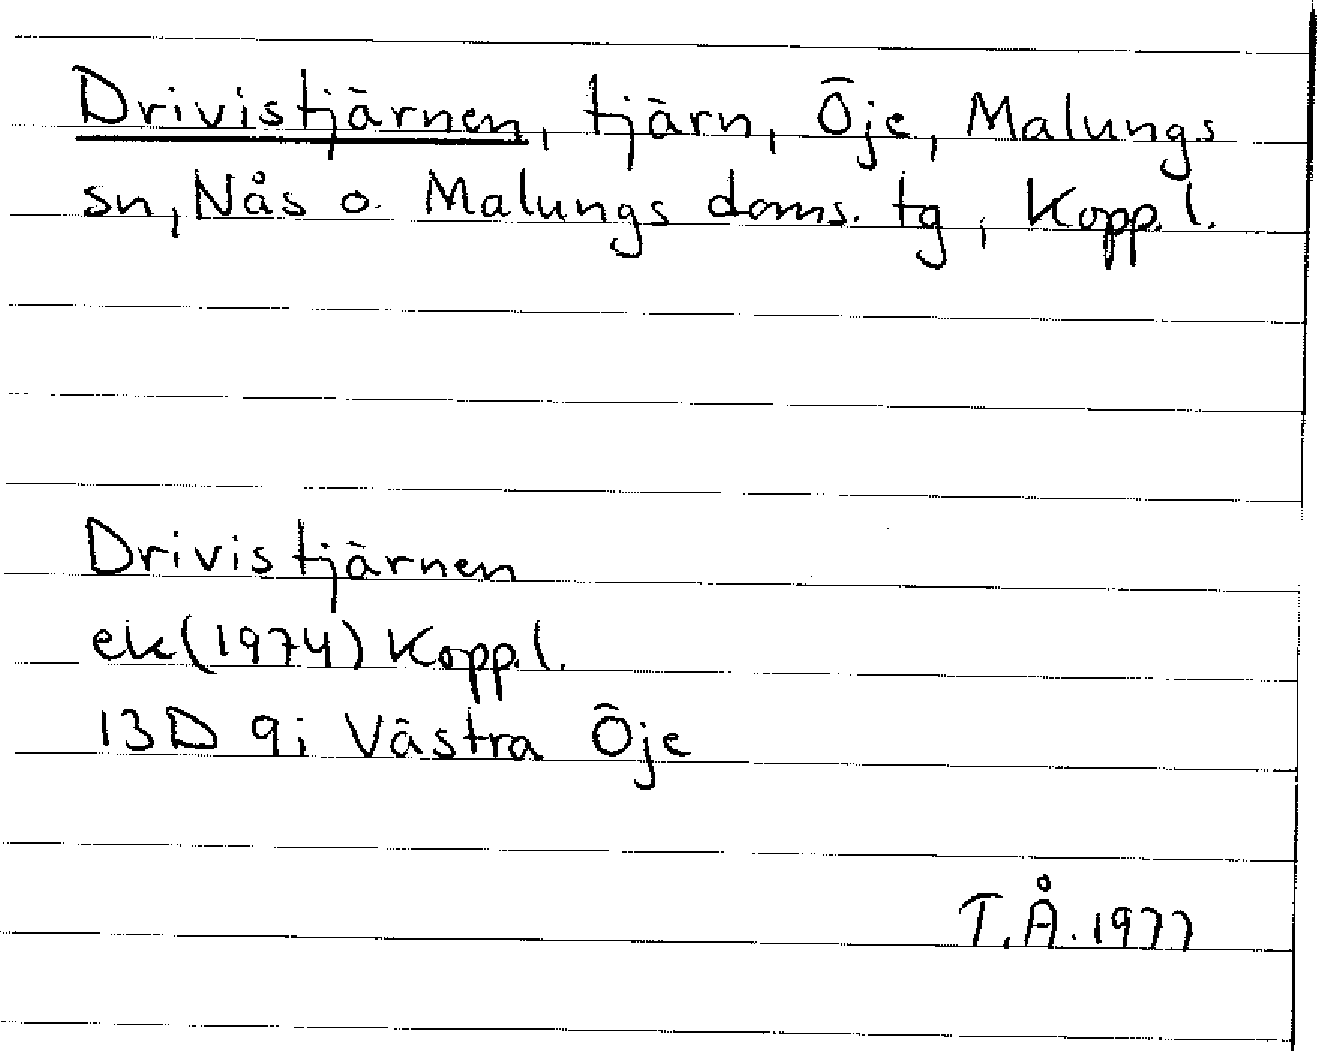 Drivistjärnen, tjärn, Öje, Malungs
sn, Nås o. Malungs doms. tg, Kopp. l.
Drivistjärnen
ek (1974) Kopp. l.
13D 9i Västra Öje
T.Å. 1977